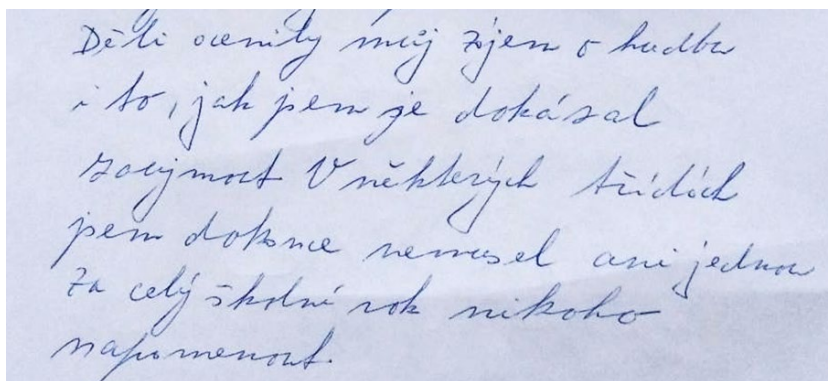 Děti ocenily můj zájem o hudbu
i to, jak jsem je dokázal
zaujmout V některých třídách
jsem dokonce nemusel ani jednou
za celý školní rok nikoho
napomenout.